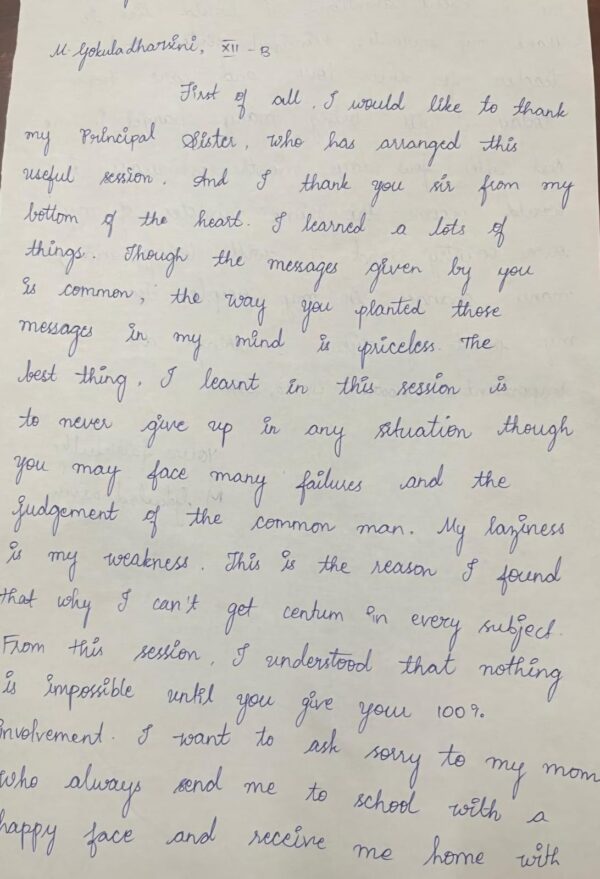 M. Gokuladharsini, XII - B
First of all, I would like to thank
my Principal Sister, who has arranged this
useful session. And I thank you sir from my
bottom of the heart. I learned a lots of
things. Though the messages given by you
is common, the way you planted those
messages in my mind is priceless. The
best thing, I learnt in this session is
to never give up in any situation though
you may face many failures and the
judgement of the common man. My laziness
is my weakness. This is the reason I found
that why I can't get centum in every subject.
From this session, I understood that nothing
is impossible until you give your 100%
involvement. I want to ask sorry to my mom
who always send me to school with a
happy face and receive me home with